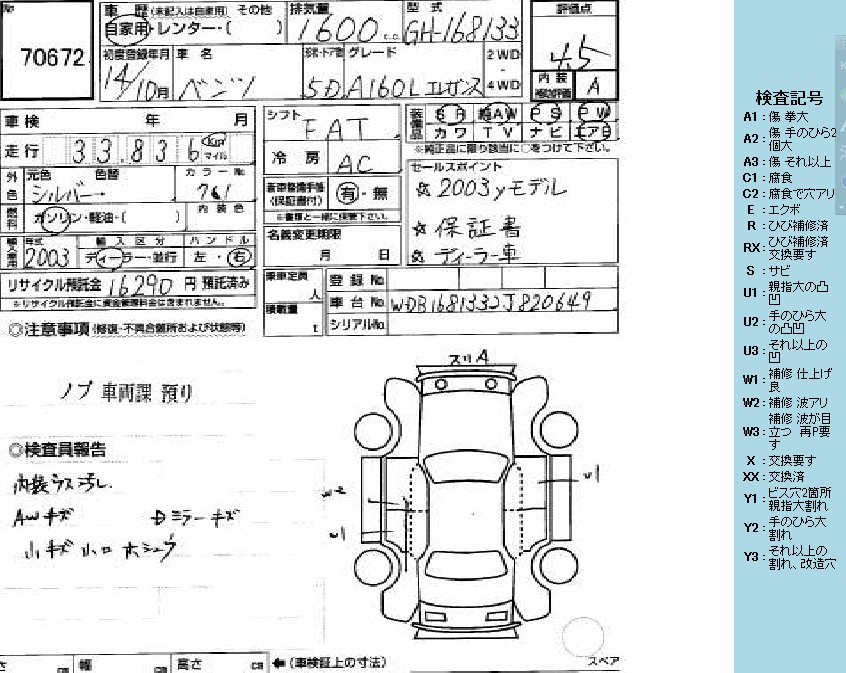 No
70672
車 歴 (未記入は自家用) その他
自家用・レンター・( )
排気量
1600 c.c.
型 式
GH-168133
評価点
4.5
内 装
補助評価 A
初度登録年月
14/10月
車 名
ベンツ
形状・ドア数
5D
グレード
A160L エレガンス
2WD
4WD
車 検 年 月
走 行 33.836 km マイル
外色
元色 色替
シルバー
カラーNo
761
燃料
ガソリン・軽油・( )
内 装 色
輸入車用
年式
2003
輸 入 区 分
ディーラー・並行
ハ ン ド ル
左・右
リサイクル預託金 16290 円 預託済み
※リサイクル預託金に資金管理料金は含まれません。
シフト
FAT
冷 房
AC
新車整備手帳
(保証書付)
有・無
※書類と一緒に保管下さい。
名義変更期限
月 日
装備品
SR 純AW PS PW
カワ TV ナビ エアB
※純正品に限り該当に○をつけて下さい。
セールスポイント
☆2003yモデル
☆保証書
☆ディーラー車
乗車定員
人
積載量
t
登 録 No.
車 台 No. WDB1681332J820649
シリアルNo.
◎注意事項 (修復・不具合箇所および状態等)
ノブ 車両課 預り
◎検査員報告
内装ウス汚し.
AWキズ
ミラーキズ
小キズ 小凹 ホシュウ
スリA
W2
U1
U1
幅
cm
高さ
cm
←(車検証上の寸法)
スペア
検査記号
A1:傷 拳大
A2:傷 手のひら2個大
A3:傷 それ以上
C1:腐食
C2:腐食で穴アリ
E:エクボ
R:ひび補修済
RX:ひび補修済 交換要す
S:サビ
U1:親指大の凸凹
U2:手のひら大の凸凹
U3:それ以上の凹
W1:補修 仕上げ良
W2:補修 波アリ
W3:補修 波が目立つ 再P要す
X:交換要す
XX:交換済
Y1:ビス穴2箇所 親指大割れ
Y2:手のひら大割れ
Y3:それ以上の割れ、改造穴